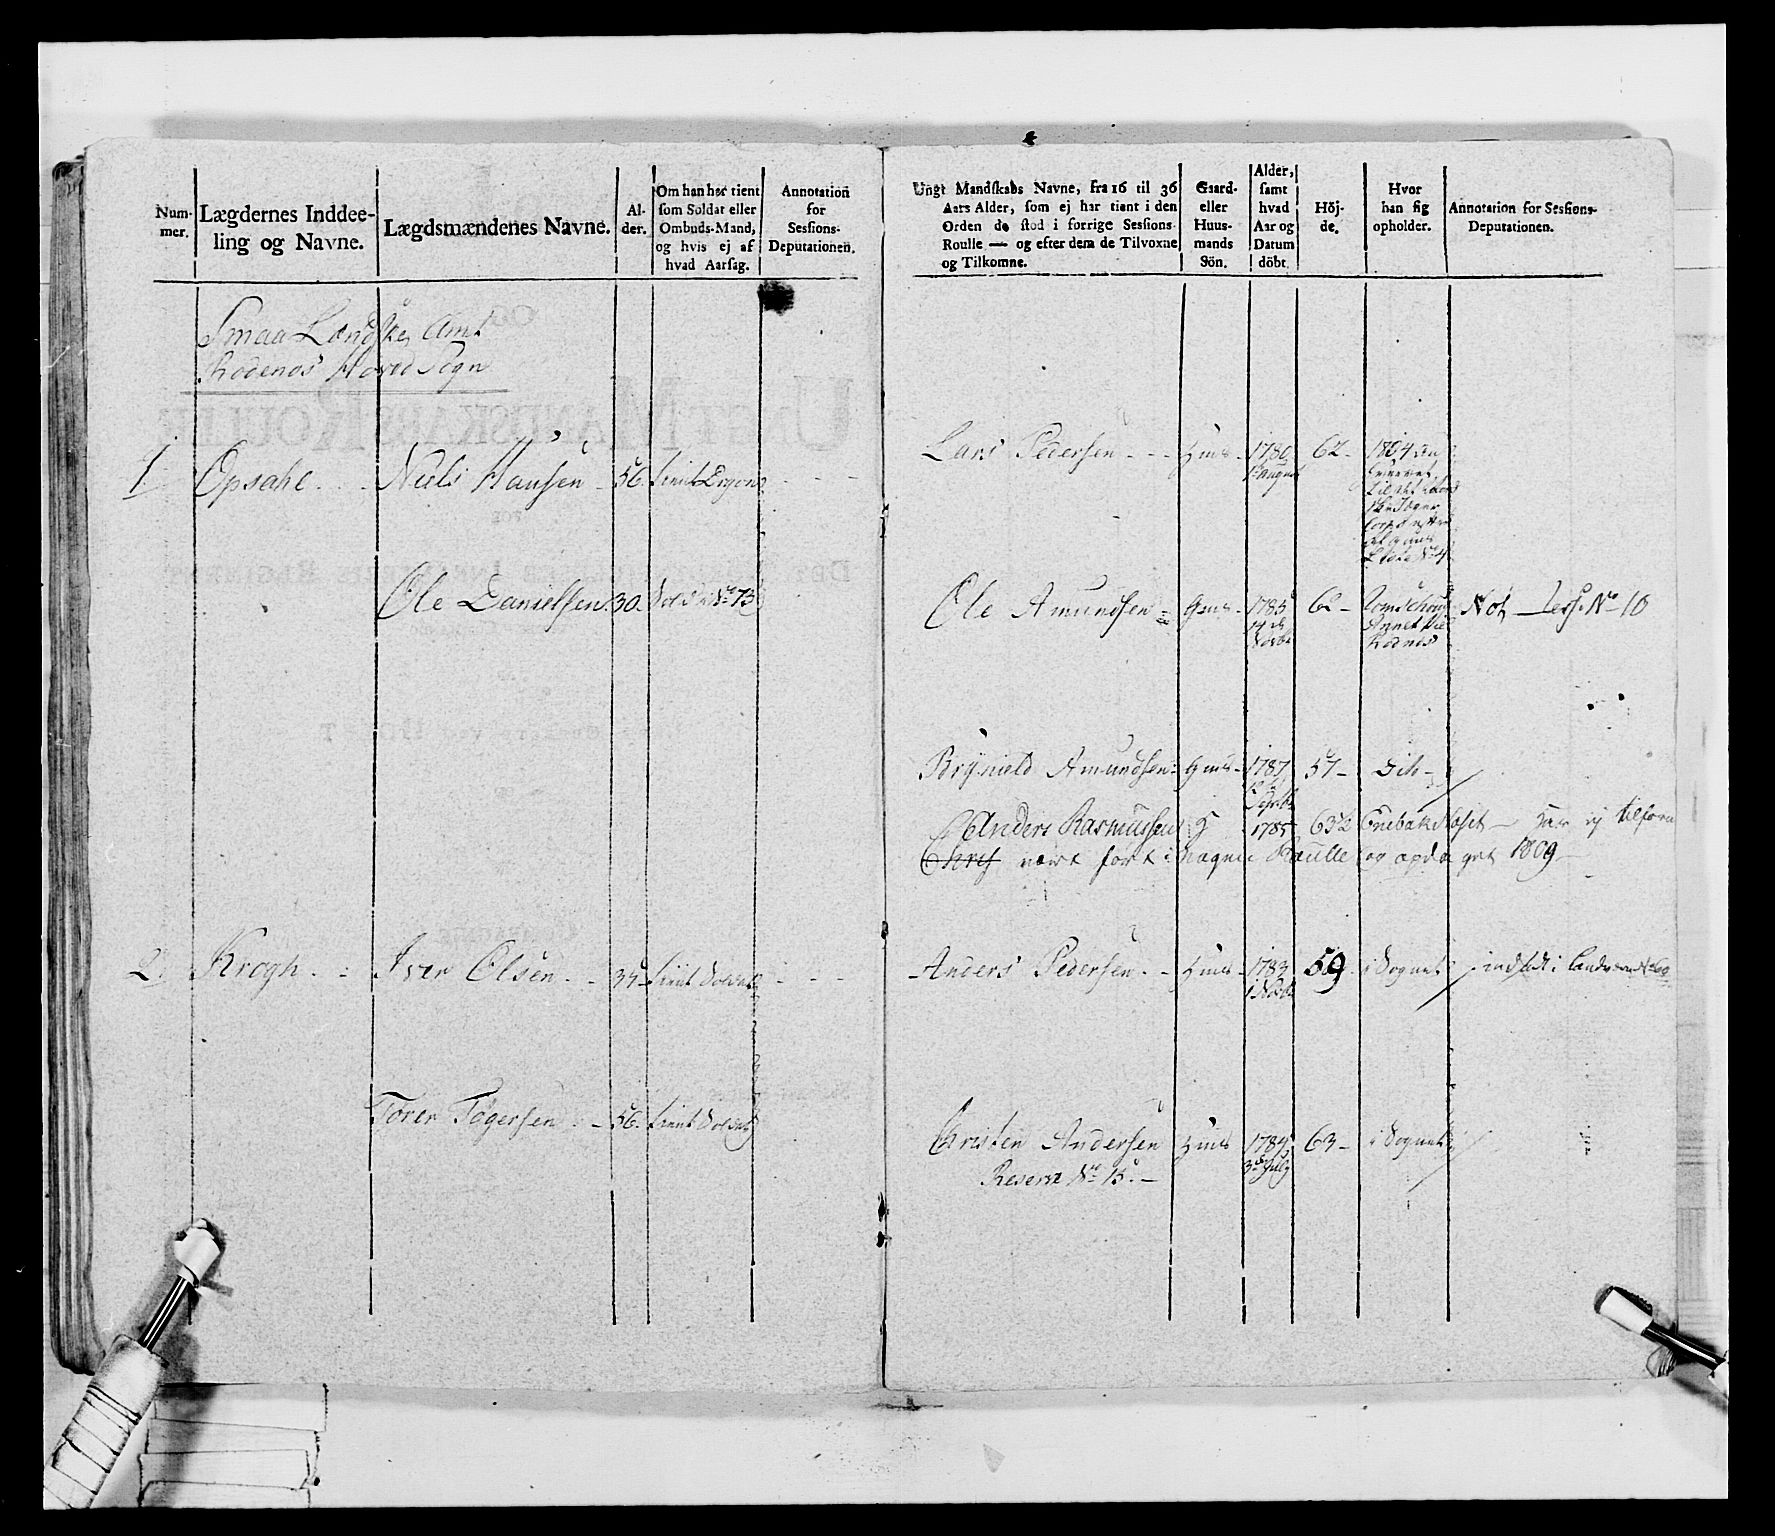 Num-
mer.
Lægdernes Inddee-
ling og Navne.
Lægdsmændenes Navne.
Al-
der.
Om han har tient
som Soldat eller
Ombuds-Mand,
og hvis ej af
hvad Aarsag.
Annotation
for
Sessions-
Deputationen.
Smaa Lændske Amt
Rødenæs Hoved Sogn
1 Opsahl Neels Hansen 56. tient Dragon
Ole Danielsen. 30. Sold: No 13
2. Krogh. Iver Olsen 34 tient Soldat
Torer Tøgersen 56. tient Soldat
Ungt Mandskabs Navne, fra 16 til 36
Aars Alder, som ej har tient i den
Orden de stod i forrige Sessions-
Roulle — og efter dem de Tilvoxne
og Tilkomne.
Gaard-
eller
Huus-
mands
Sön.
Alder,
samt
hvad
Aar og
Datum
döbt.
Höj-
de.
Hvor
han sig
opholder.
Annotation for Sessions-
Deputationen.
Lars Pedersen Huus 1780 62 1804
August
No 4
Ole Amundsen Gms 1785 62
14 de
Rødnes
Not No 10
Brynild Amundsen Gms 1787 57 dito
Anders Rasmussen H 1785 63½ Enebak har ej tilforn
Chris været ført i nogen Roulle og opdaget 1809
Anders Pedersen Huus 1783 59 i Sognet indsadt i Landværnet
Christen Andersen Huus 1784 63 i Sognet
3 de July
Reserve No 13.